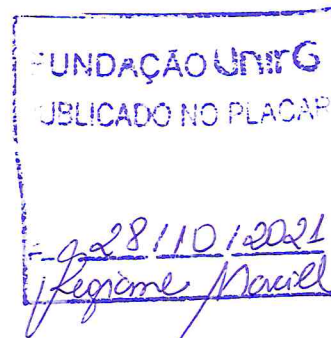 FUNDAÇÃO UnirG
PUBLICADO NO PLACAR
28/10/2021
Regiane Maciel